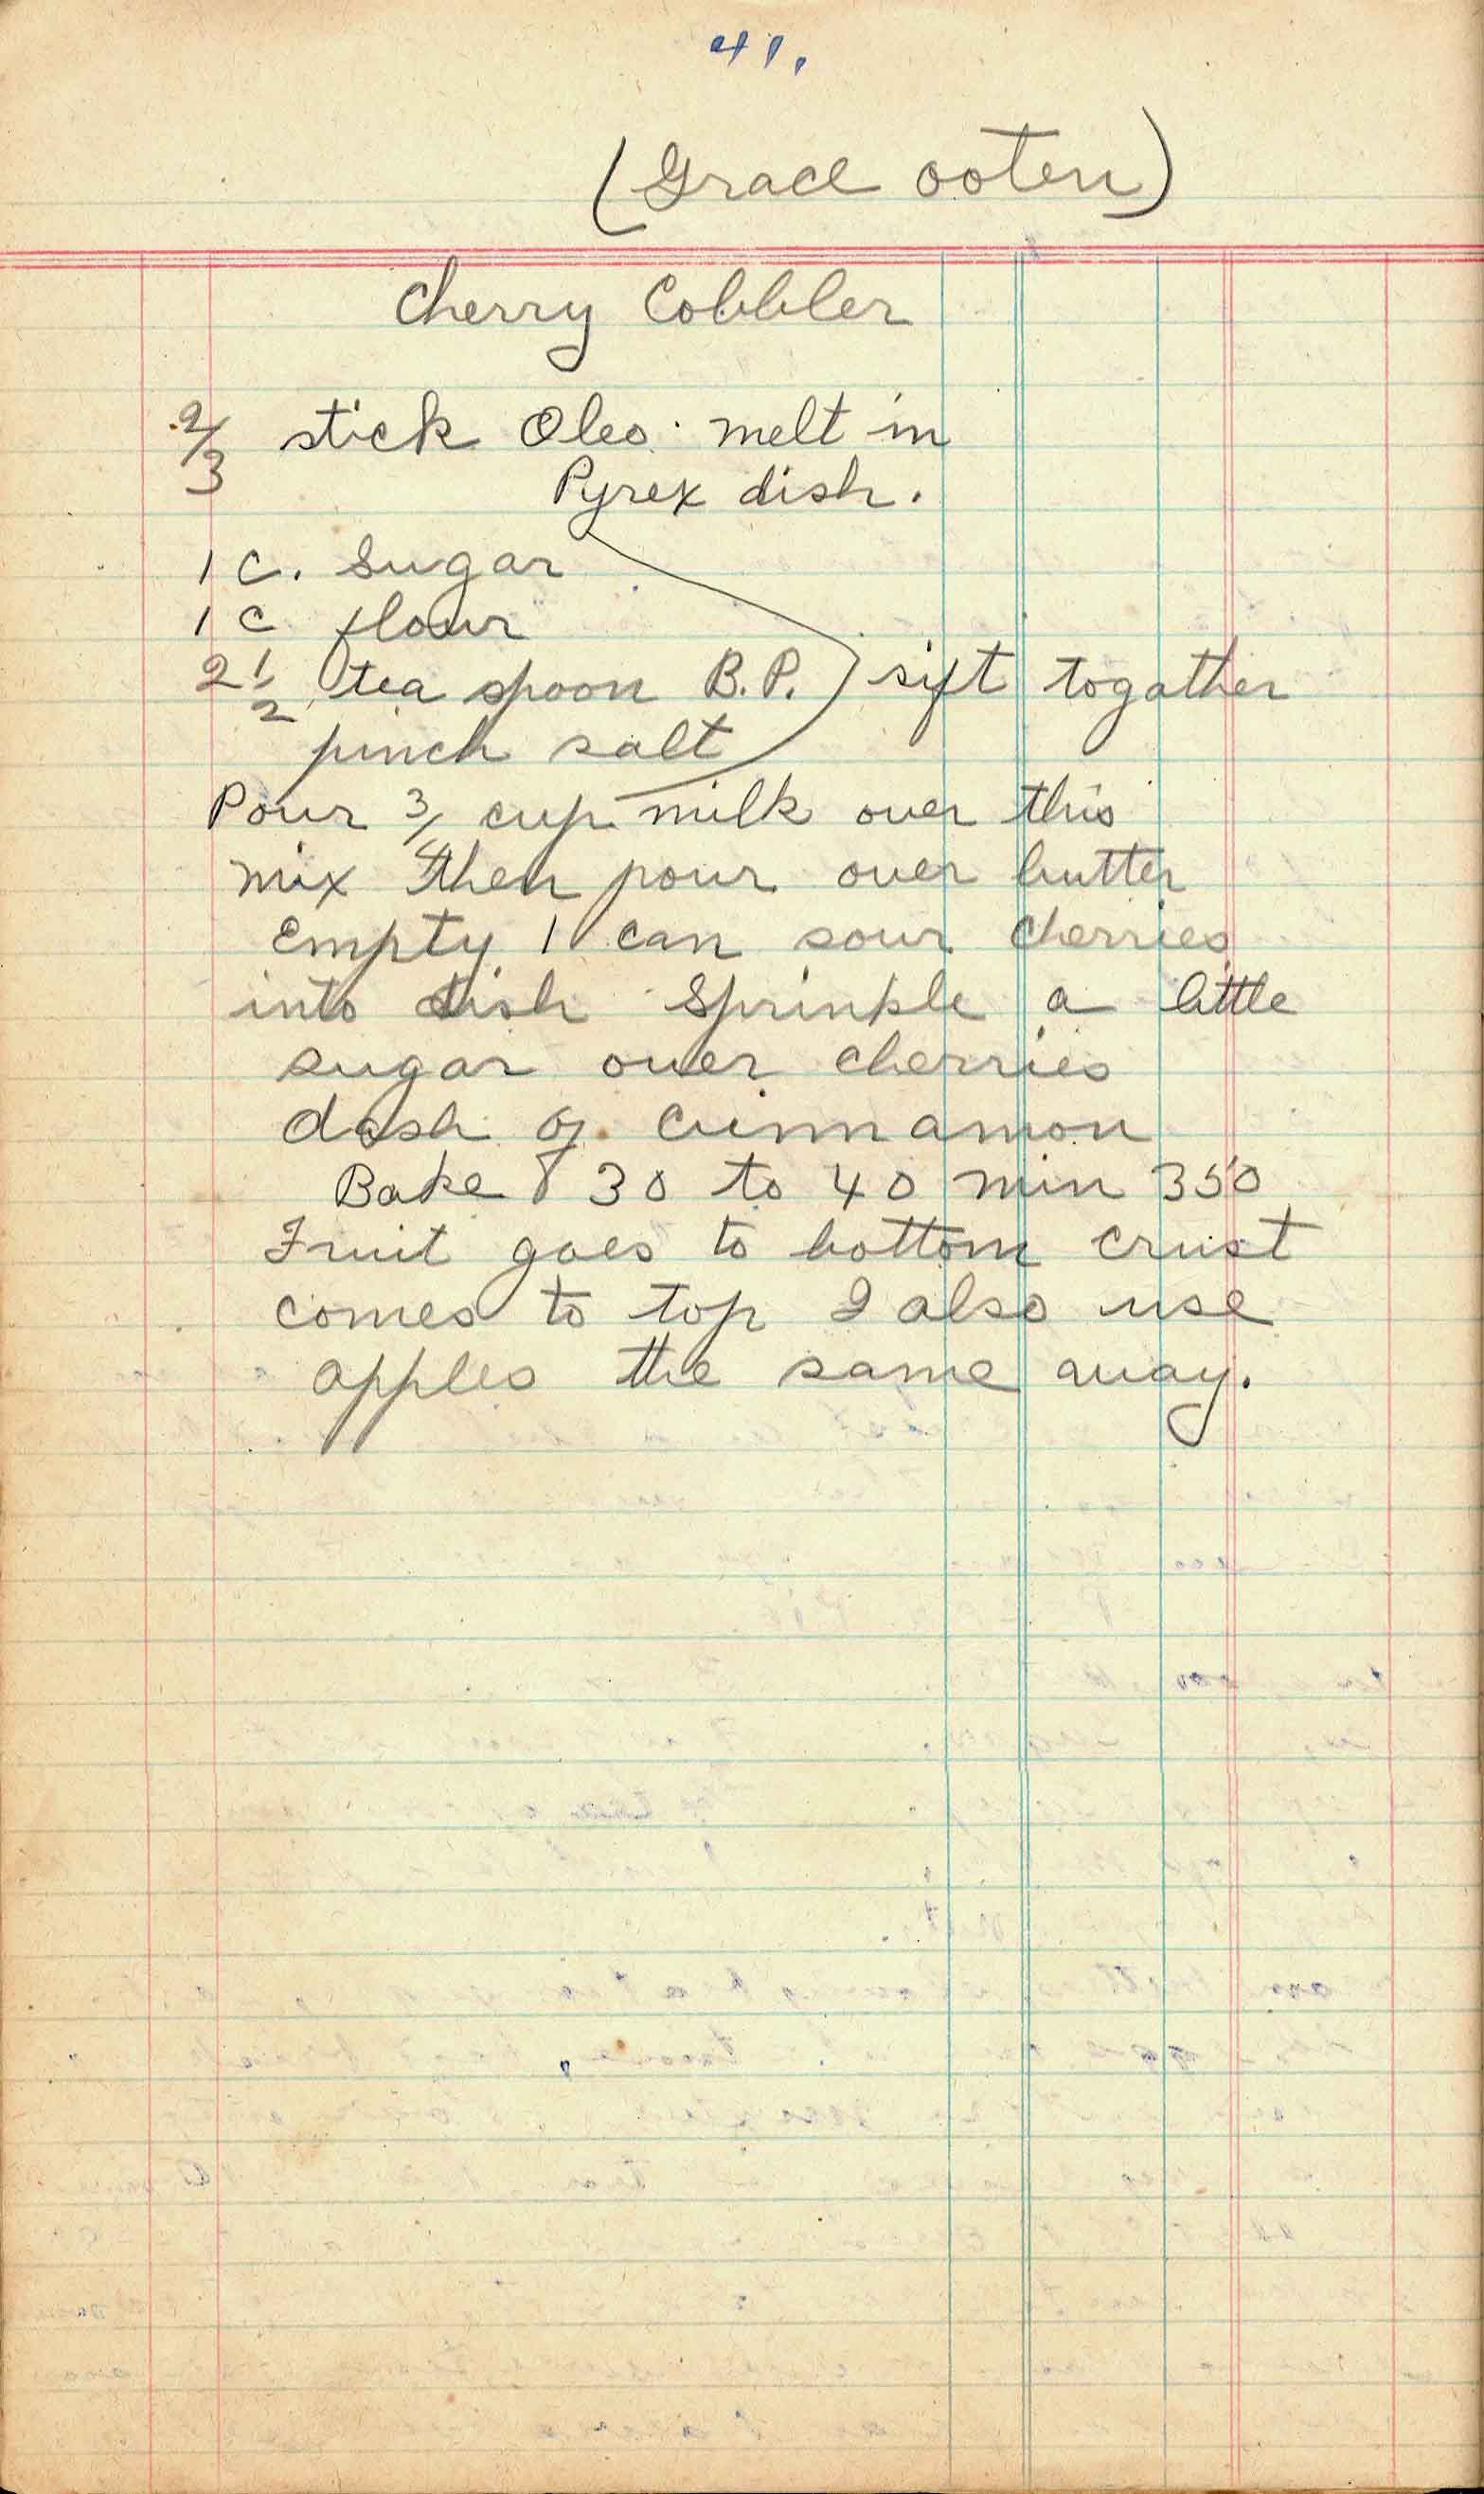 41.
(Grace ooten)
Cherry Cobbler
2/3 stick Oleo. melt in
Pyrex dish.
1 C. Sugar
1 C flour
2 1/2 tea spoon B.P. ) sift togather
pinch salt
Pour 3/4 cup milk over this
mix then pour over butter
Empty 1 can sour cherries
into dish Sprinkle a little
sugar over cherries
dash of Cinnamon
Bake 30 to 40 min 350
Fruit goes to bottom crust
comes to top I also use
apples the same way.